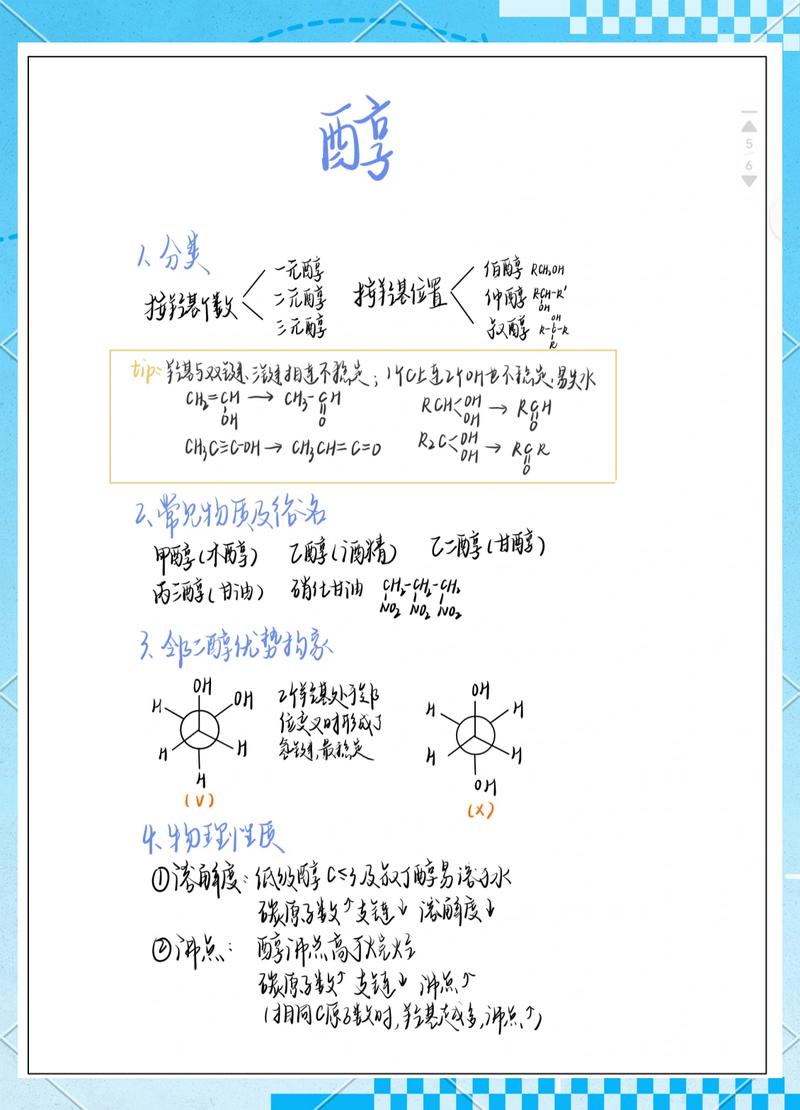 醇
5
6
1、分类
按羟基个数 一元醇 二元醇 三元醇
按羟基位置 伯醇 RCH₂OH 仲醇 RCH-R' OH 叔醇 OH R-C-R R
tip: 羟基与双键、三键相连不稳定；1个C上连2个OH也不稳定,易失水
CH₂=CH OH → CH₃-CH O RCH OH OH → RCH O
CH₃C≡C-OH → CH₃CH=C=O R₂C OH OH → RCR O
2、常见物质及俗名
甲醇(木醇) 乙醇(酒精) 乙二醇(甘醇)
丙三醇(甘油) 硝化甘油 CH₂-CH₂-CH₂
NO₂ NO₂ NO₂
3、邻二醇优势构象
OH OH H H H H
(√)
2个羟基处于邻
位交叉时形成了
氢键,最稳定
OH H H H H OH
(×)
4、物理性质
①溶解度：低级醇C≤3及叔丁醇易溶于水
碳原子数↑支链↓ 溶解度↓
②沸点： 醇沸点高于烷烃
碳原子数↑ 支链↓ 沸点↑
(相同C原子数时,羟基越多,沸点↑)